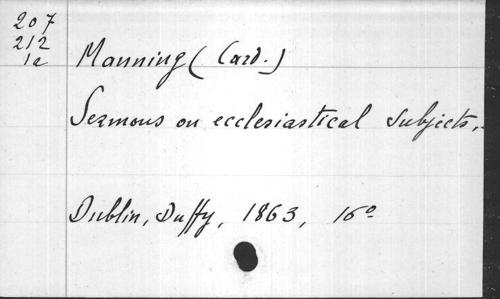 207
212
1e
Manning (Card.)
Sermons on ecclesiastical subjects,
Dublin, Duffy, 1863, 16º